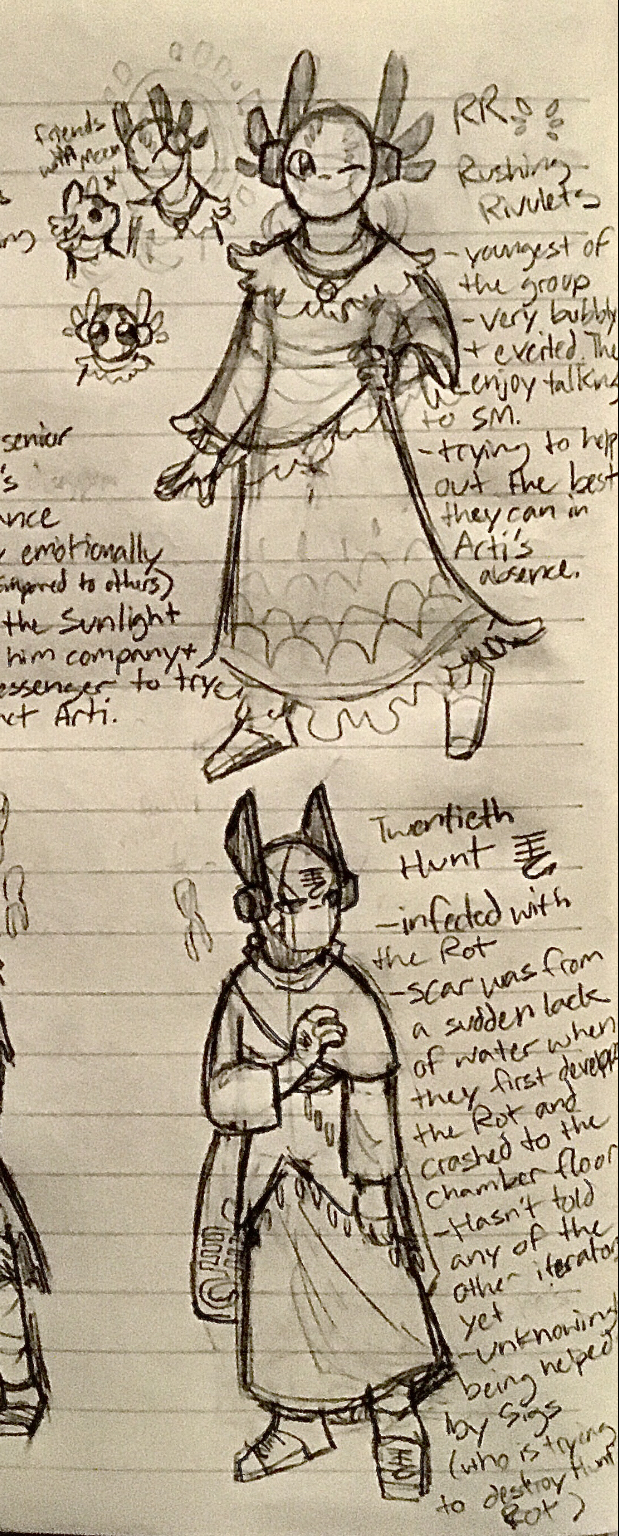 friends
with Moon
RR
Rushing
Rivulets
- youngest of
the group
- very bubbly
+ excited. The
enjoy talking
to SM.
- trying to help
out the best
they can in
Arti's
absence.
senior
's
ance
emotionally
ompared to others)
the Sunlight
him company +
essenger to try
ct Arti.
Twentieth
Hunt
- infected with
the Rot
- scar was from
a sudden lack
of water when
they first develope
the Rot and
crashed to the
chamber floor
- Hasn't told
any of the
other iterators
yet
- unknowing
being helped
by Sigs
(who is trying
to destroy Hunt
Rot)